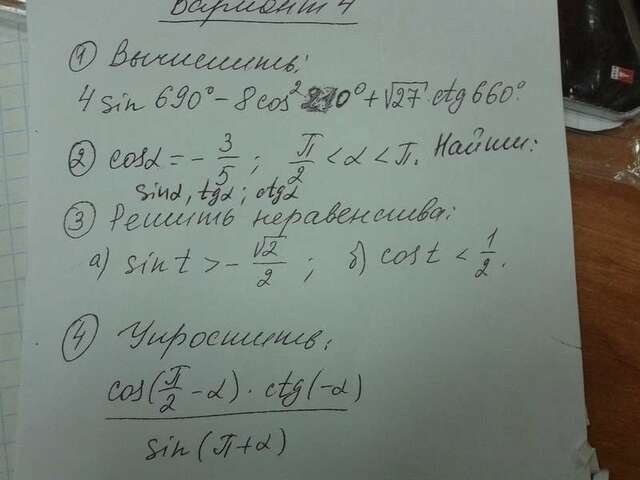 Вариант 4
① Вычислить:
4 sin 690° - 8 cos² 210° + √27 · ctg 660°.
② cosα = - 3/5 ; π/2 < α < π. Найти:
sinα, tgα ; ctgα
③ Решить неравенства:
а) sin t > - √2/2 ; б) cos t < 1/2 .
④ Упростить:
cos(π/2 - α) · ctg(-α)
sin(π+α)